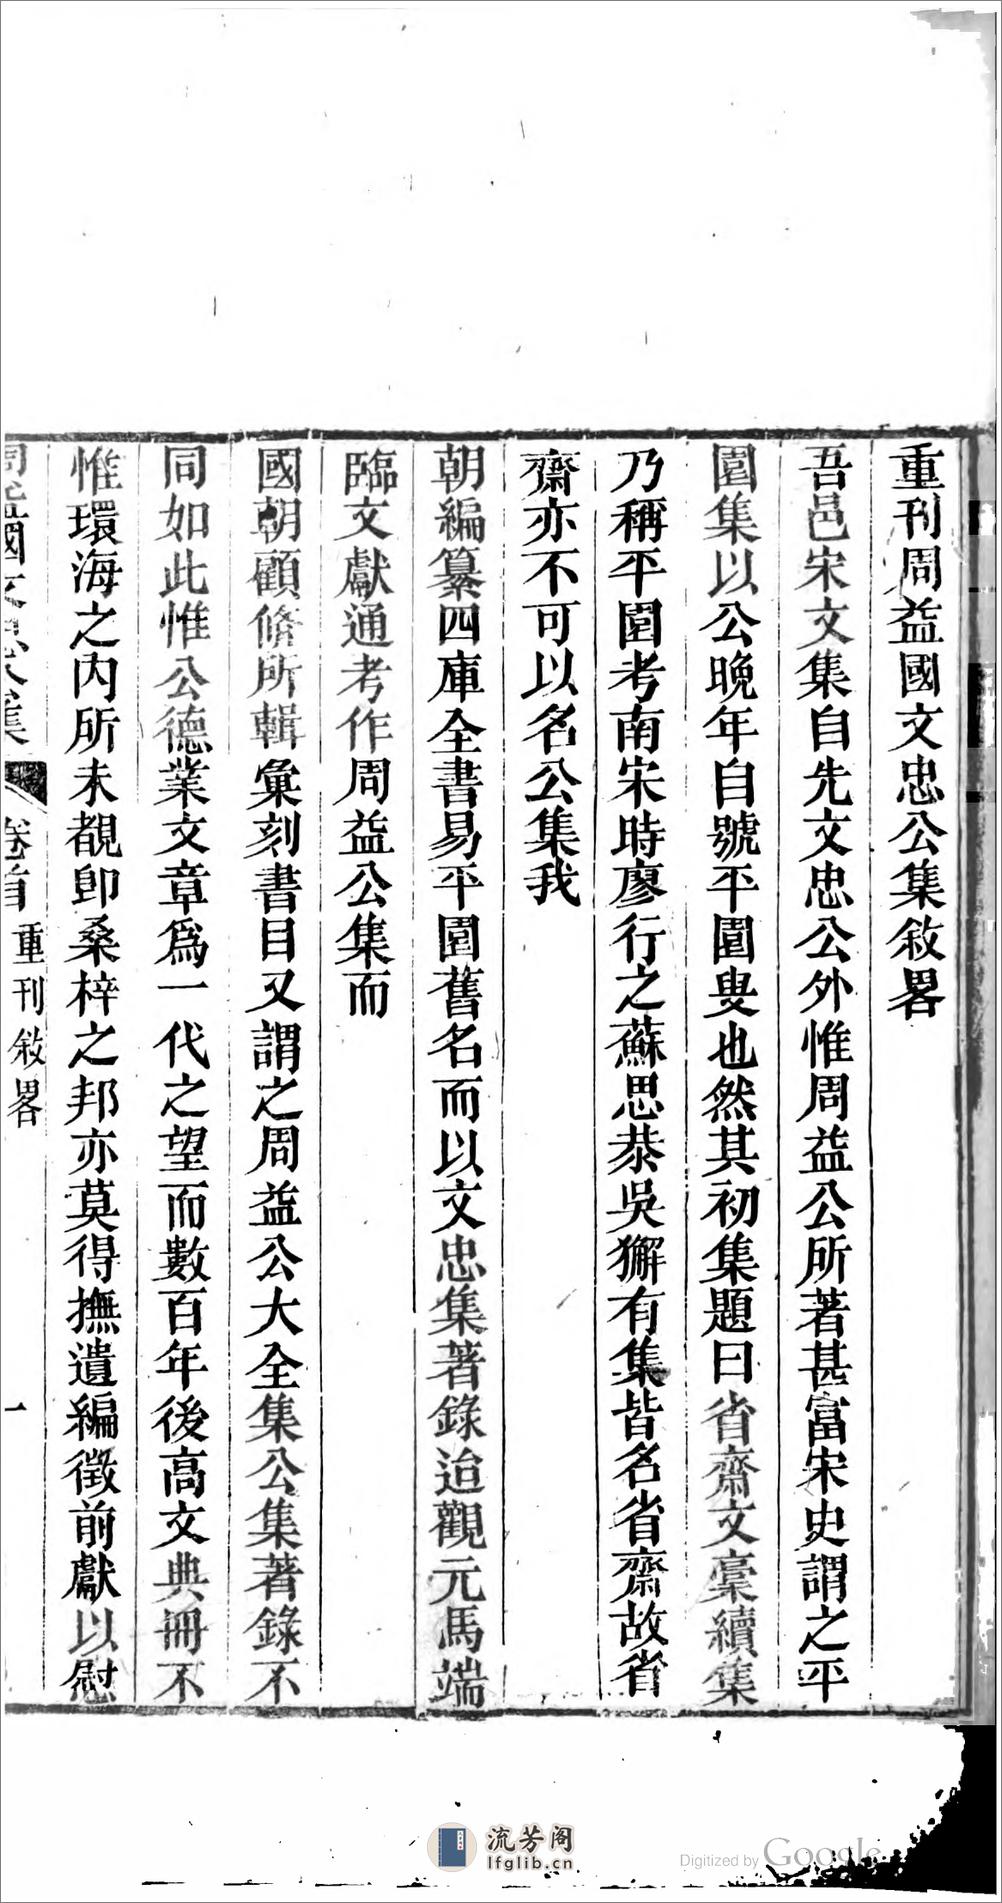 重刊周益國文忠公集敘畧
吾邑宋文集自先文忠公外惟周益公所著甚富宋史謂之平
園集以公晚年自號平園叟也然其初集題曰省齋文稾續集
乃稱平園考南宋時廖行之蘇思恭吳獬有集皆名省齋故省
齋亦不可以名公集我
朝編纂四庫全書易平園舊名而以文忠集著錄迨觀元馬端
臨文獻通考作周益公集而
國朝顧脩所輯彙刻書目又謂之周益公大全集公集著錄不
同如此惟公德業文章為一代之望而數百年後高文典冊不
惟環海之內所未覩卽桑梓之邦亦莫得撫遺編徵前獻以慰
周益國文忠公集 卷首 重刊敘畧 一
流芳阁
lfglib.cn
Digitized by Google